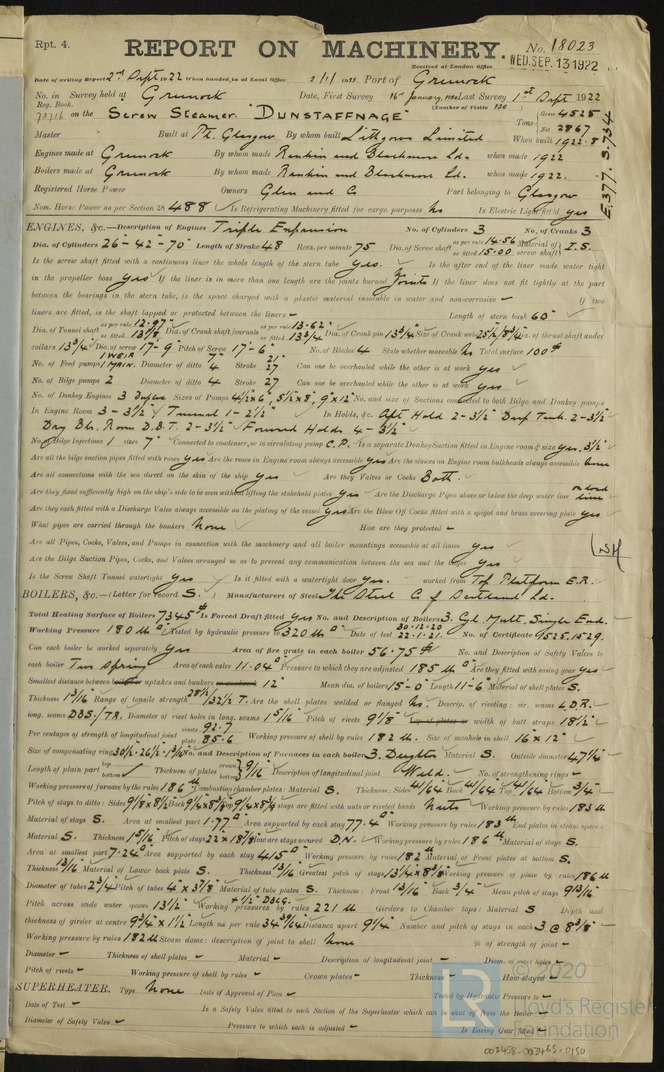 Rpt. 4.
REPORT ON MACHINERY.
No. 18023
Received at London Office WED. SEP. 13 1922
Date of writing Report 2nd Sept 1922 When handed in at Local Office 2/9/1922 Port of Greenock
No. in Survey held at Greenock Date, First Survey 16th January, Last Survey 1st Sept 1922
Reg. Book. (Number of Visits 120)
on the Screw Steamer "DUNSTAFFNAGE" Tons Gross 4525 Net 2867
Master Built at Pt. Glasgow By whom built Lithgows Limited When built 1922-8
Engines made at Greenock By whom made Rankin and Blackmore Ld. when made 1922
Boilers made at Greenock By whom made Rankin and Blackmore Ld. when made 1922.
Registered Horse Power Owners Glen and Co Port belonging to Glasgow
Nom. Horse Power as per Section 28 488 Is Refrigerating Machinery fitted for cargo purposes No Is Electric Light fitted yes
E.377. S.734
ENGINES, &c.—Description of Engines Triple Expansion No. of Cylinders 3 No. of Cranks 3
Dia. of Cylinders 26-42-70" Length of Stroke 48 Revs. per minute 75 Dia. of Screw shaft as per rule 14.56 as fitted 15.00 Material of screw shaft I.S.
Is the screw shaft fitted with a continuous liner the whole length of the stern tube yes. Is the after end of the liner made water tight
in the propeller boss yes If the liner is in more than one length are the joints burned Joints If the liner does not fit tightly at the part
between the bearings in the stern tube, is the space charged with a plastic material insoluble in water and non-corrosive - If two
liners are fitted, is the shaft lapped or protected between the liners - Length of stern bush 60"
Dia. of Tunnel shaft as per rule 12.97" as fitted 13 1/8" Dia. of Crank shaft journals as per rule 13.62" as fitted 13 3/4 Dia. of Crank pin 13 3/4" Size of Crank webs 25 1/2 x 8 3/4 Dia. of thrust shaft under
collars 13 3/4" Dia. of screw 17'-9" Pitch of Screw 17'-6" No. of Blades 4 State whether moveable No Total surface 100
No. of Feed pumps 1 WEIR 1 MAIN. Diameter of ditto 7" 4 Stroke 21" 27 Can one be overhauled while the other is at work yes
No. of Bilge pumps 2 Diameter of ditto 4 Stroke 27 Can one be overhauled while the other is at work yes
No. of Donkey Engines 3 Duplex Sizes of Pumps 4 1/2 x 6", 5 1/2 x 8", 9" x 12" No. and size of Suctions connected to both Bilge and Donkey pumps
In Engine Room 3-3 1/2" Tunnel 1-2 1/2" In Holds, &c. Aft Hold 2-3 1/2" Deep Tank. 2-3 1/2
Dry Blr. Room D.B.T. 2-3 1/2" Forward Holds 4-3 1/2"
No. of Bilge Injections 1 sizes 7" Connected to condenser, or to circulating pump C.P. Is a separate Donkey Suction fitted in Engine room & size yes. 3 1/2"
Are all the bilge suction pipes fitted with roses yes Are the roses in Engine room always accessible yes Are the sluices on Engine room bulkheads always accessible none
Are all connections with the sea direct on the skin of the ship yes Are they Valves or Cocks Both.
Are they fixed sufficiently high on the ship's side to be seen without lifting the stokehold plates yes Are the Discharge Pipes above or below the deep water line on load line
Are they each fitted with a Discharge Valve always accessible on the plating of the vessel yes Are the Blow Off Cocks fitted with a spigot and brass covering plate yes
What pipes are carried through the bunkers None How are they protected -
Are all Pipes, Cocks, Valves, and Pumps in connection with the machinery and all boiler mountings accessible at all times yes
Are the Bilge Suction Pipes, Cocks, and Valves arranged so as to prevent any communication between the sea and the bilges yes
Is the Screw Shaft Tunnel watertight yes Is it fitted with a watertight door yes. worked from Top Platform E.R.
BOILERS, &c.—(Letter for record S.) Manufacturers of Steel The Steel C. of Scotland Ld.
Total Heating Surface of Boilers 7345 Is Forced Draft fitted yes No. and Description of Boilers 3. Cyl. Mult. Single End.
Working Pressure 180 lb Tested by hydraulic pressure to 320 lb Date of test 30.12.20 22.1.21. No. of Certificate 1525.1529.
Can each boiler be worked separately yes Area of fire grate in each boiler 56.75 No. and Description of Safety Valves to
each boiler Two Spring Area of each valve 11.04 Pressure to which they are adjusted 185 lb Are they fitted with easing gear yes
Smallest distance between boilers or uptakes and bunkers 12" Mean dia. of boilers 15'-0" Length 11'-6" Material of shell plates S.
Thickness 1 3/16 Range of tensile strength 28 1/2/32 1/2 T. Are the shell plates welded or flanged No. Descrip. of riveting: cir. seams L.D.R.
long. seams DBS./TR. Diameter of rivet holes in long. seams 1 5/16" Pitch of rivets 9 1/8" width of butt straps 18 1/2"
Per centages of strength of longitudinal joint rivets 92.7 plate 85.6 Working pressure of shell by rules 182 lb. Size of manhole in shell 16" x 12"
Size of compensating ring 30 1/2 - 26 1/2 - 1 3/16 No. and Description of Furnaces in each boiler 3. Deighton Material S. Outside diameter 47 1/4"
Length of plain part top bottom Thickness of plates crown bottom 9/16 Description of longitudinal joint Weld. No. of strengthening rings -
Working pressure of furnace by the rules 186 lb Combustion chamber plates: Material S. Thickness: Sides 41/64 Back 41/64 Top 41/64 Bottom 3/4"
Pitch of stays to ditto: Sides 9 1/8 x 8 1/2 Back 9 1/4 x 8 3/8 Top 9 1/4 x 8 3/4 If stays are fitted with nuts or riveted heads Nuts Working pressure by rules 183 lb
Material of stays S. Area at smallest part 1.77 Area supported by each stay 77.4 Working pressure by rules 183 lb End plates in steam space:
Material S. Thickness 1 5/16 Pitch of stays 22 x 18 7/8 How are stays secured D.N. Working pressure by rules 186 lb Material of stays S.
Area at smallest part 7.24 Area supported by each stay 415 Working pressure by rules 182 lb Material of Front plates at bottom S.
Thickness 13/16 Material of Lower back plate S. Thickness 13/16 Greatest pitch of stays 13 1/4 x 8 3/8 Working pressure of plate by rules 186 lb
Diameter of tubes 2 3/4 Pitch of tubes 4" x 3 7/8 Material of tube plates S. Thickness: Front 13/16 Back 3/4" Mean pitch of stays 9 13/16
Pitch across wide water spaces 13 1/2" + 1/2" DBLG. Working pressures by rules 221 lb Girders to Chamber tops: Material S Depth and
thickness of girder at centre 9 3/4 x 1 1/2 Length as per rule 34 39/64 Distance apart 9 1/4 Number and pitch of stays in each 3 @ 8 3/8"
Working pressure by rules 182 lb Steam dome: description of joint to shell None % of strength of joint -
Diameter - Thickness of shell plates - Material - Description of longitudinal joint - Diam. of rivet holes -
Pitch of rivets - Working pressure of shell by rules - Crown plates - Thickness - How stayed -
SUPERHEATER. Type None Date of Approval of Plan - Tested by Hydraulic Pressure to -
Date of Test - Is a Safety Valve fitted to each Section of the Superheater which can be shut off from the Boiler -
Diameter of Safety Valve - Pressure to which each is adjusted - Is Easing Gear fitted -
© 2020
Lloyd's Register
Foundation
002458-003465-0150